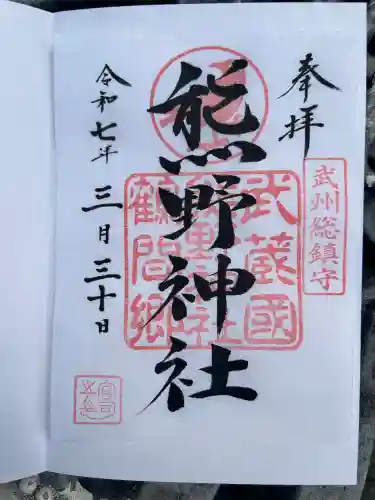 奉拝
武州総鎮守
熊野神社
武蔵國
鶴間郷
令和七年三月三十日